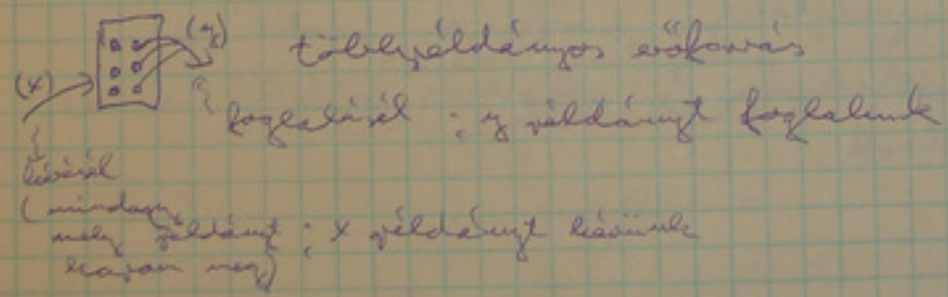 (y)
többpéldányos erőforrás
(x)
foglalásál : y példányt foglalunk
kérésél
(mindegy,
mely példányt : x példányt kérünk
kapom meg)